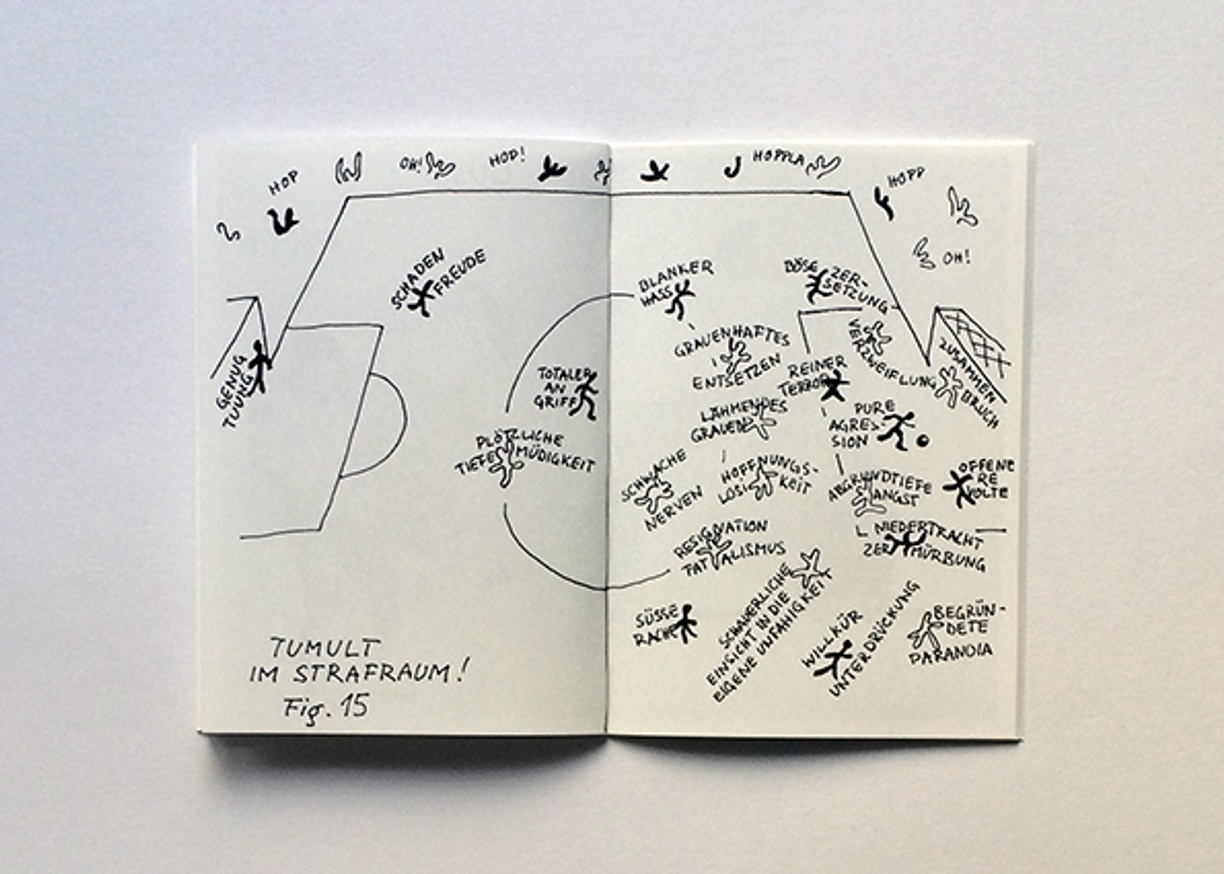 HOP
OH!
HOP!
HOPPLA
HOPP
OH!
SCHADEN
FREUDE
GENUG
TUUNG
TOTALER
AN
GRIFF
PLÖTZLICHE
TIEFE MÜDIGKEIT
TUMULT
IM STRAFRAUM!
Fig. 15
BLANKER
HASS
BÖSE ZER-
SETZUNG
GRAUENHAFTES
ENTSETZEN
VERZWEIFLUNG
ZUSAMMEN
BRUCH
REINER
TERROR
LÄHMENDES
GRAUEN
PURE
AGRES-
SION
SCHWACHE
NERVEN
HOFFNUNGS-
LOSIGKEIT
ABGRUNDTIEFE
ANGST
OFFENE
RE
VOLTE
RESIGNATION
FATALISMUS
NIEDERTRACHT
ZERMÜRBUNG
SÜSSE
RACHE
SCHAUERLICHE
EINSICHT IN DIE
EIGENE UNFÄHIGKEIT
WILLKÜR
UNTERDRÜCKUNG
BEGRÜN-
DETE
PARANOIA